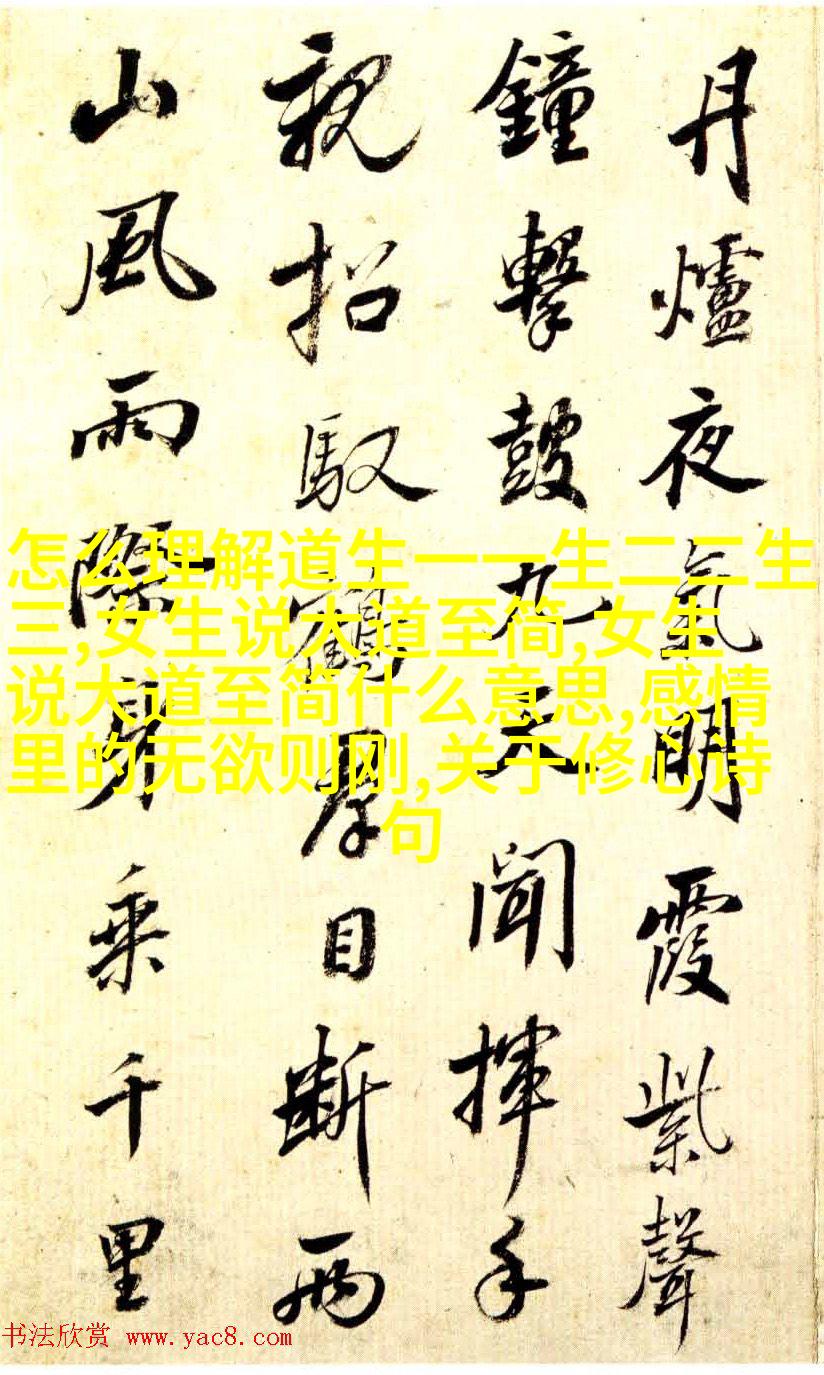 丹爐夜氣明霞紫聲
鐘擊鼓九天聞揮手
親招馭鶴羣目斷兩
山風雨際身乘千里
怎么理解道生一一生二二生
三,女生说大道至简,女生
说大道至简什么意思,感情
里的无欲则刚,关于修心诗
句
书法欣赏 www.yac8.com